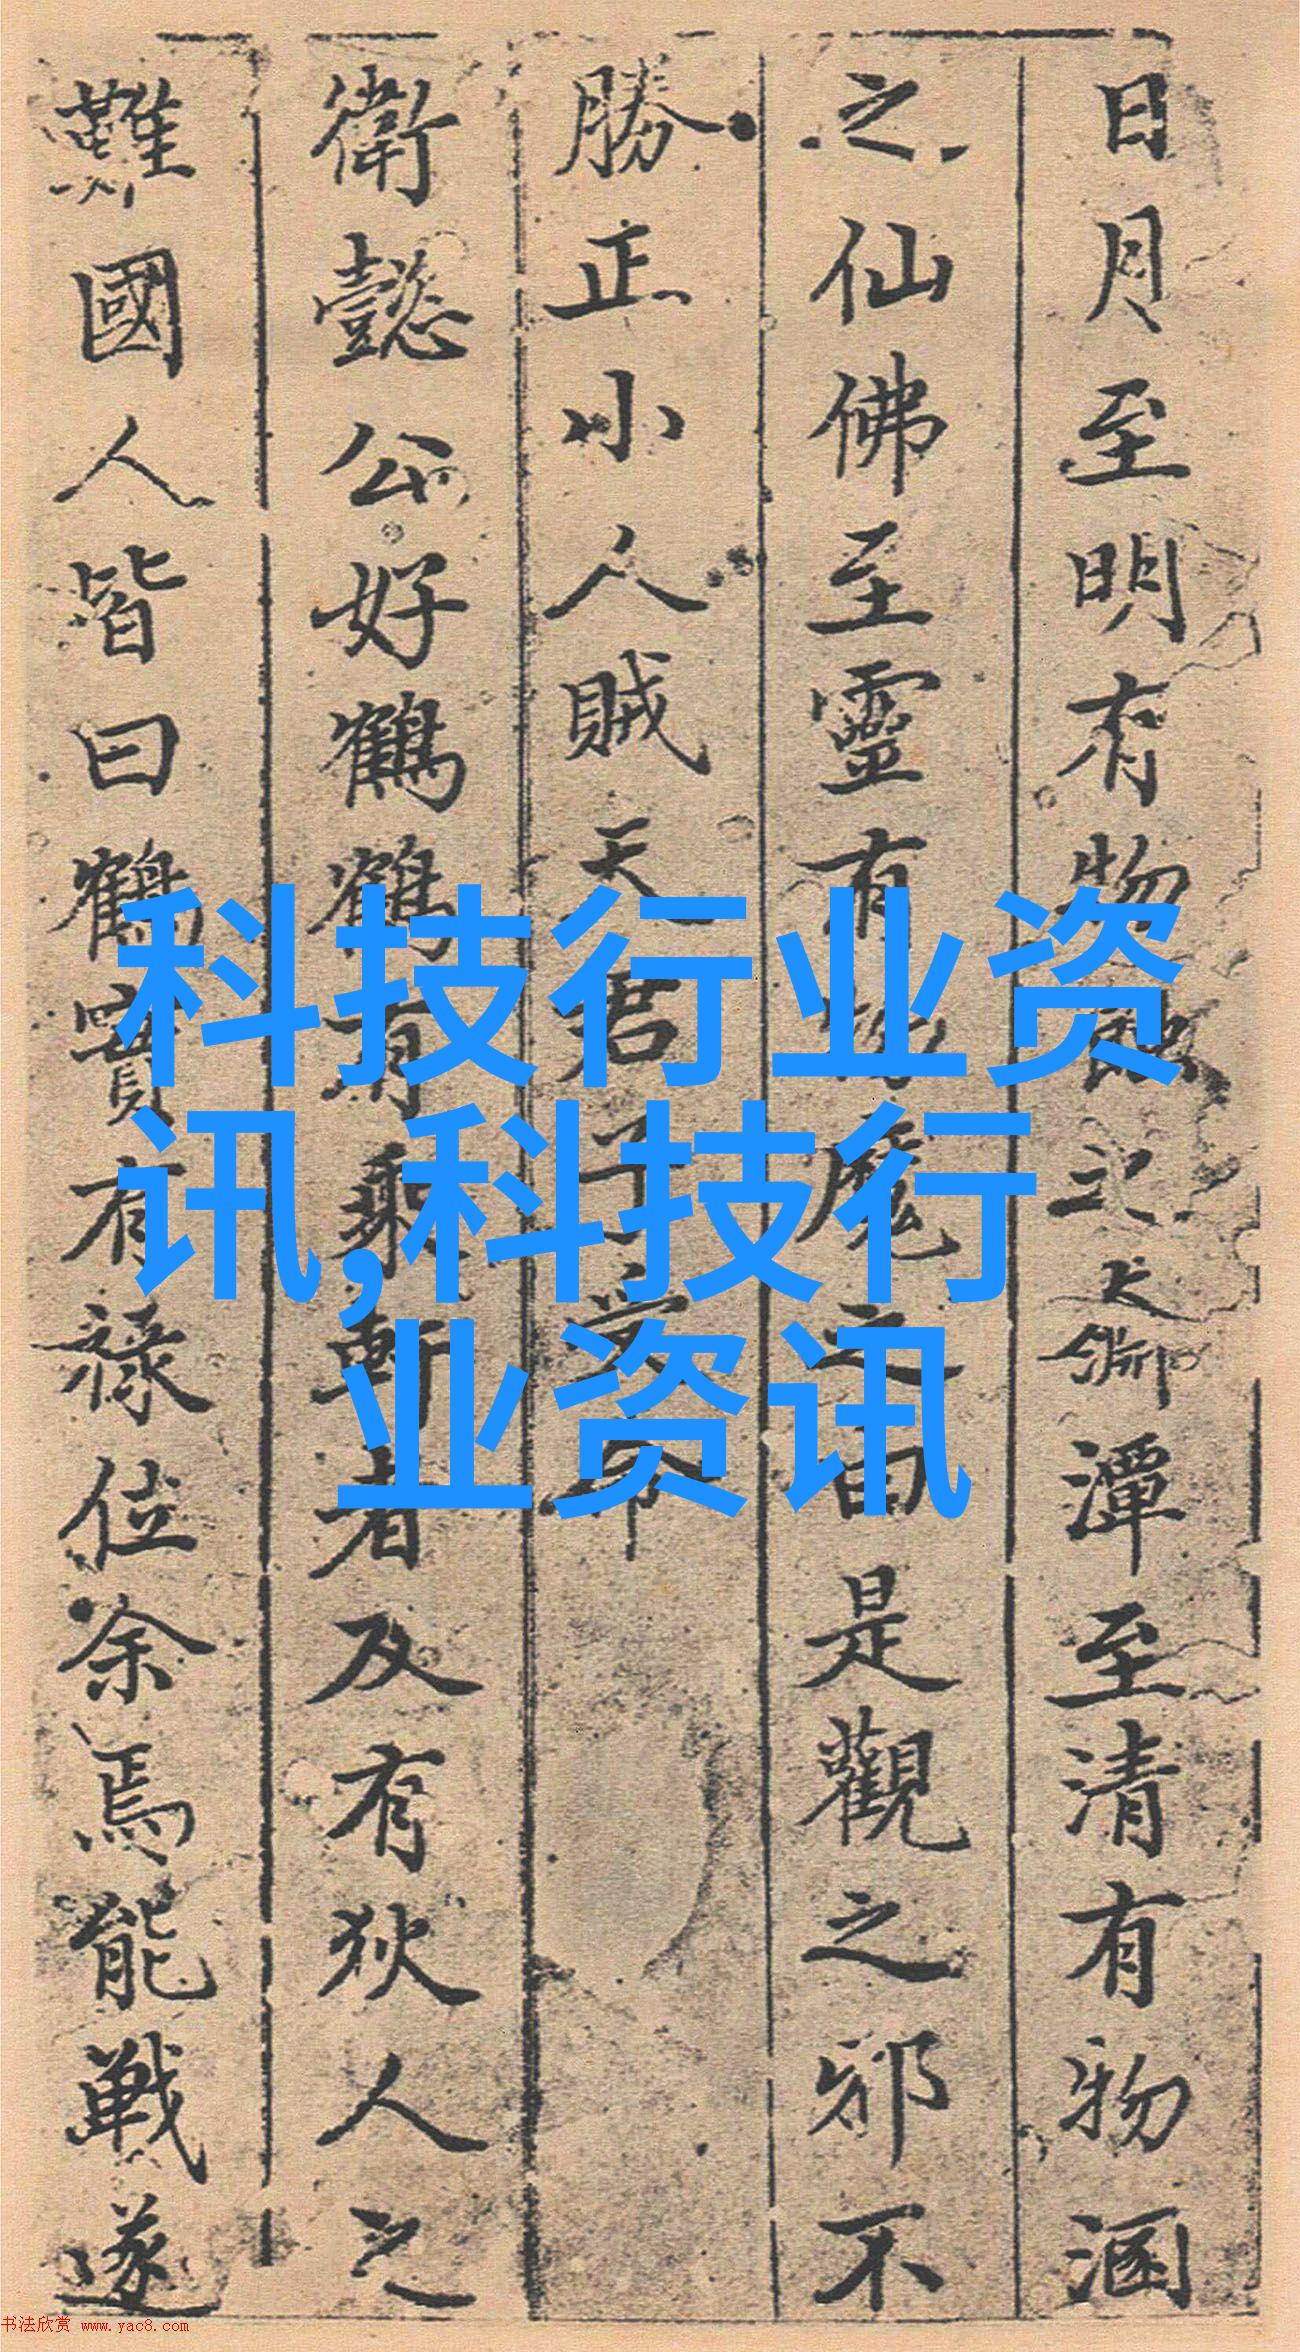 日月至明有物之潭至清有物涵
之仙佛至靈有物魔之由是觀之邪不
勝正小人賊天君子安命
衛懿公好鶴鶴有乘軒者及有狄人之
難國人皆曰鶴實有祿位余焉能戰遂
科技行业资
讯,科技行
业资讯
书法欣赏 www.yac8.com